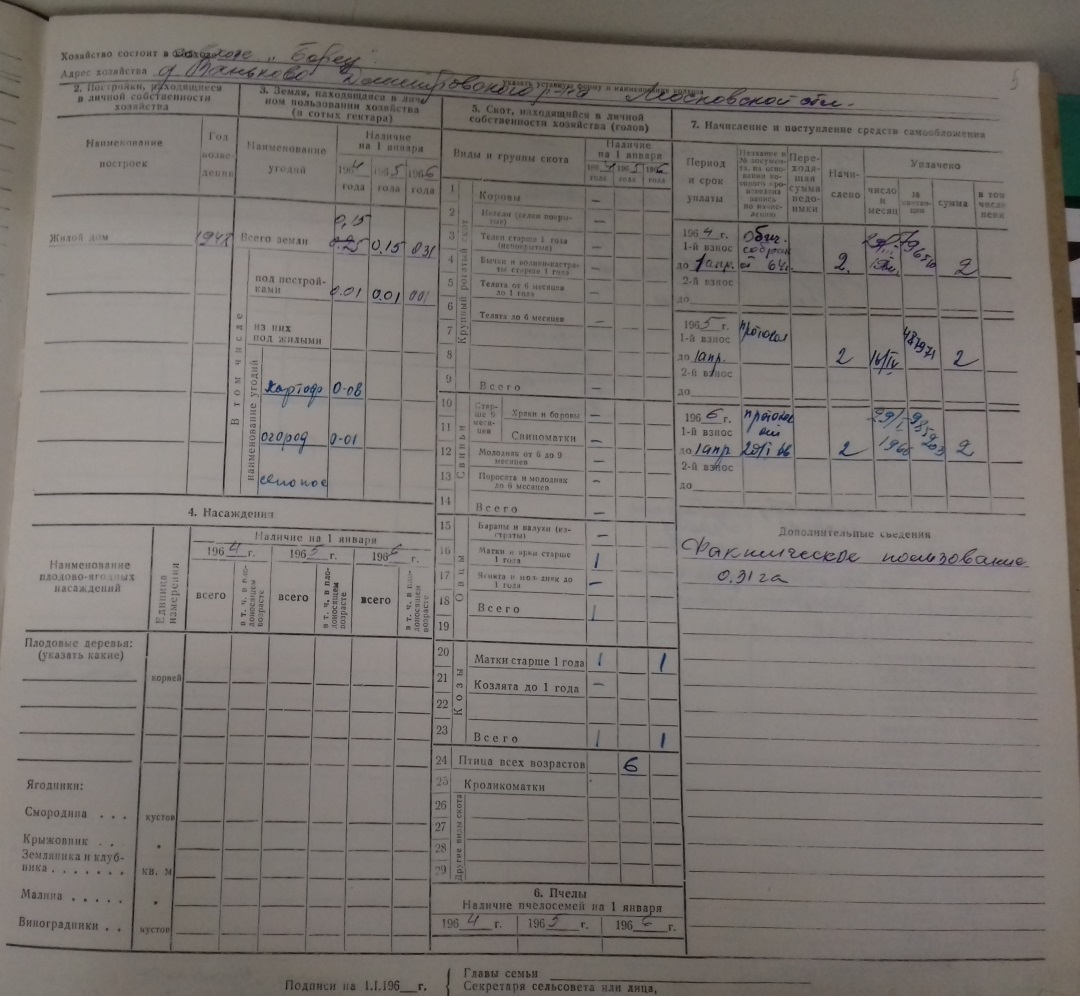 5
Хозяйство состоит в совхозе „Борец“
указать уставную форму и наименование колхоза
Адрес хозяйства д. Ваньково Дмитровского р-на Московской обл.
2. Постройки, находящиеся
в личной собственности
хозяйства
Наименование
построек
Год
возве-
дения
Жилой дом
3. Земли, находящиеся в лич-
ном пользовании хозяйства
(в сотых гектара)
Наименование
угодий
Наличие
на 1 января
1964 1965 1966
года года года
0,15
Всего земли 0.25 0.15 0.31
под построй-
ками 0.01 0.01 0.01
В том числе
из них
под жилыми
наименование угодий
картоф 0-08
огород 0-01
сенокос
4. Насаждения
Наименование
плодово-ягодных
насаждений
Единица
измерения
Наличие на 1 января
1964 г. 1965 г. 1966 г.
всего в т. ч. в пло-
доносящем
возрасте
всего в т. ч. в пло-
доносящем
возрасте
всего в т. ч. в пло-
доносящем
возрасте
Плодовые деревья:
(указать какие)
корней
Ягодники:
Смородина . . . кустов
Крыжовник . . „
Земляника и клуб-
ника . . . . . . . кв. м
Малина . . . . . „
Виноградники . . кустов
5. Скот, находящийся в личной
собственности хозяйства (голов)
Виды и группы скота
Наличие
на 1 января
1964 1965 1966
года года года
Крупный рогатый скот
1 Коровы –
2 Нетели (телки покры-
тые) –
3 Телки старше 1 года
(непокрытые) –
4 Бычки и волики-кастра-
ты старше 1 года –
5 Телята от 6 месяцев
до 1 года –
6 Телята до 6 месяцев –
7
8
9 Всего –
Свиньи
Стар-
ше 9
меся-
цев
10 Хряки и боровы –
11 Свиноматки –
12 Молодняк от 6 до 9
месяцев –
13 Поросята и молодняк
до 6 месяцев –
14 Всего –
Овцы
15 Бараны и валухи (ка-
страты) –
16 Матки и ярки старше
1 года 1
17 Ягнята и молодняк до
1 года –
18 Всего 1
19
Козы
20 Матки старше 1 года 1 1
21 Козлята до 1 года –
22
23 Всего 1 1
24 Птица всех возрастов 6
25 Кроликоматки
Другие виды скота
26
27
28
29
6. Пчелы
Наличие пчелосемей на 1 января
1964 г. 1965 г. 1966 г.
7. Начисление и поступление средств самообложения
Период
и срок
уплаты
Название и
№ докумен-
та, на осно-
вании ко-
торого про-
изведена
запись
по начис-
лению
Пере-
ходя-
щая
сумма
недо-
имки
Начи-
слено
Уплачено
число
и
месяц
№
квитан-
ции
сумма
в том
числе
пени
1964 г. общ.
1-й взнос собран
до 1 апр. 64 2. 2
2-й взнос
до
1965 г. протокол
1-й взнос
до 1 апр. 2 16/IV 487971 2
2-й взнос
до
1966 г. протокол
1-й взнос
до 1 апр 20/I 66 2 1966 985203 2
2-й взнос
до
Дополнительные сведения
Фактическое пользование
0.31 га
Подписи на 1.I.196 г.
Главы семьи
Секретаря сельсовета или лица,